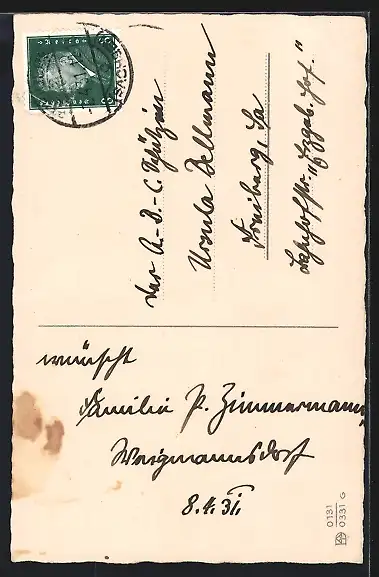 der A.-B.-C. Schützin
Ursula Bellmann
Freiberg, Sa
Bahnhofstr. "Erzgeb. Hof."
wünscht
Familie P. Zimmermann,
Weigmannsdorf
8.4.31.
0131
0331 G